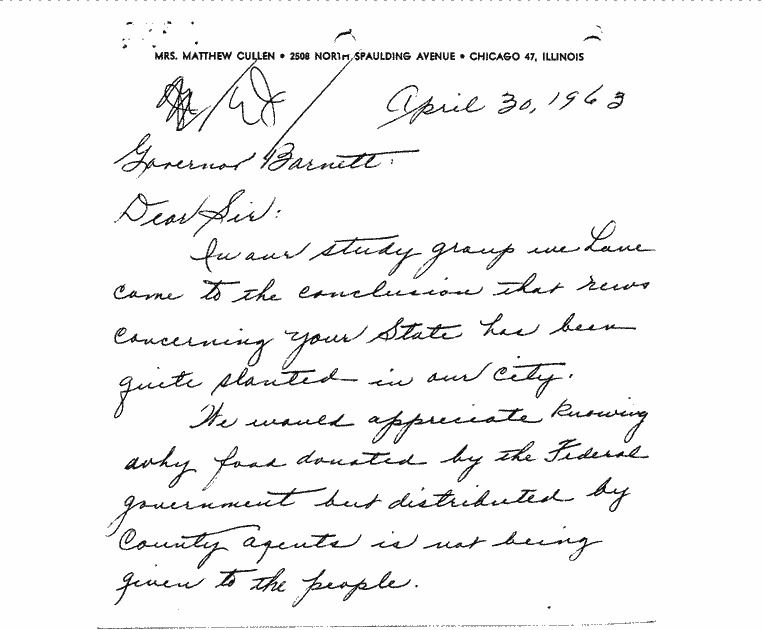 MRS. MATTHEW CULLEN • 2508 NORTH SPAULDING AVENUE • CHICAGO 47, ILLINOIS
April 30, 1963
Governor Barnett:
Dear Sir:
In our study group we have
come to the conclusion that news
concerning your State has been
quite slanted in our city.
We would appreciate knowing
why food donated by the Federal
government but distributed by
County agents is not being
given to the people.